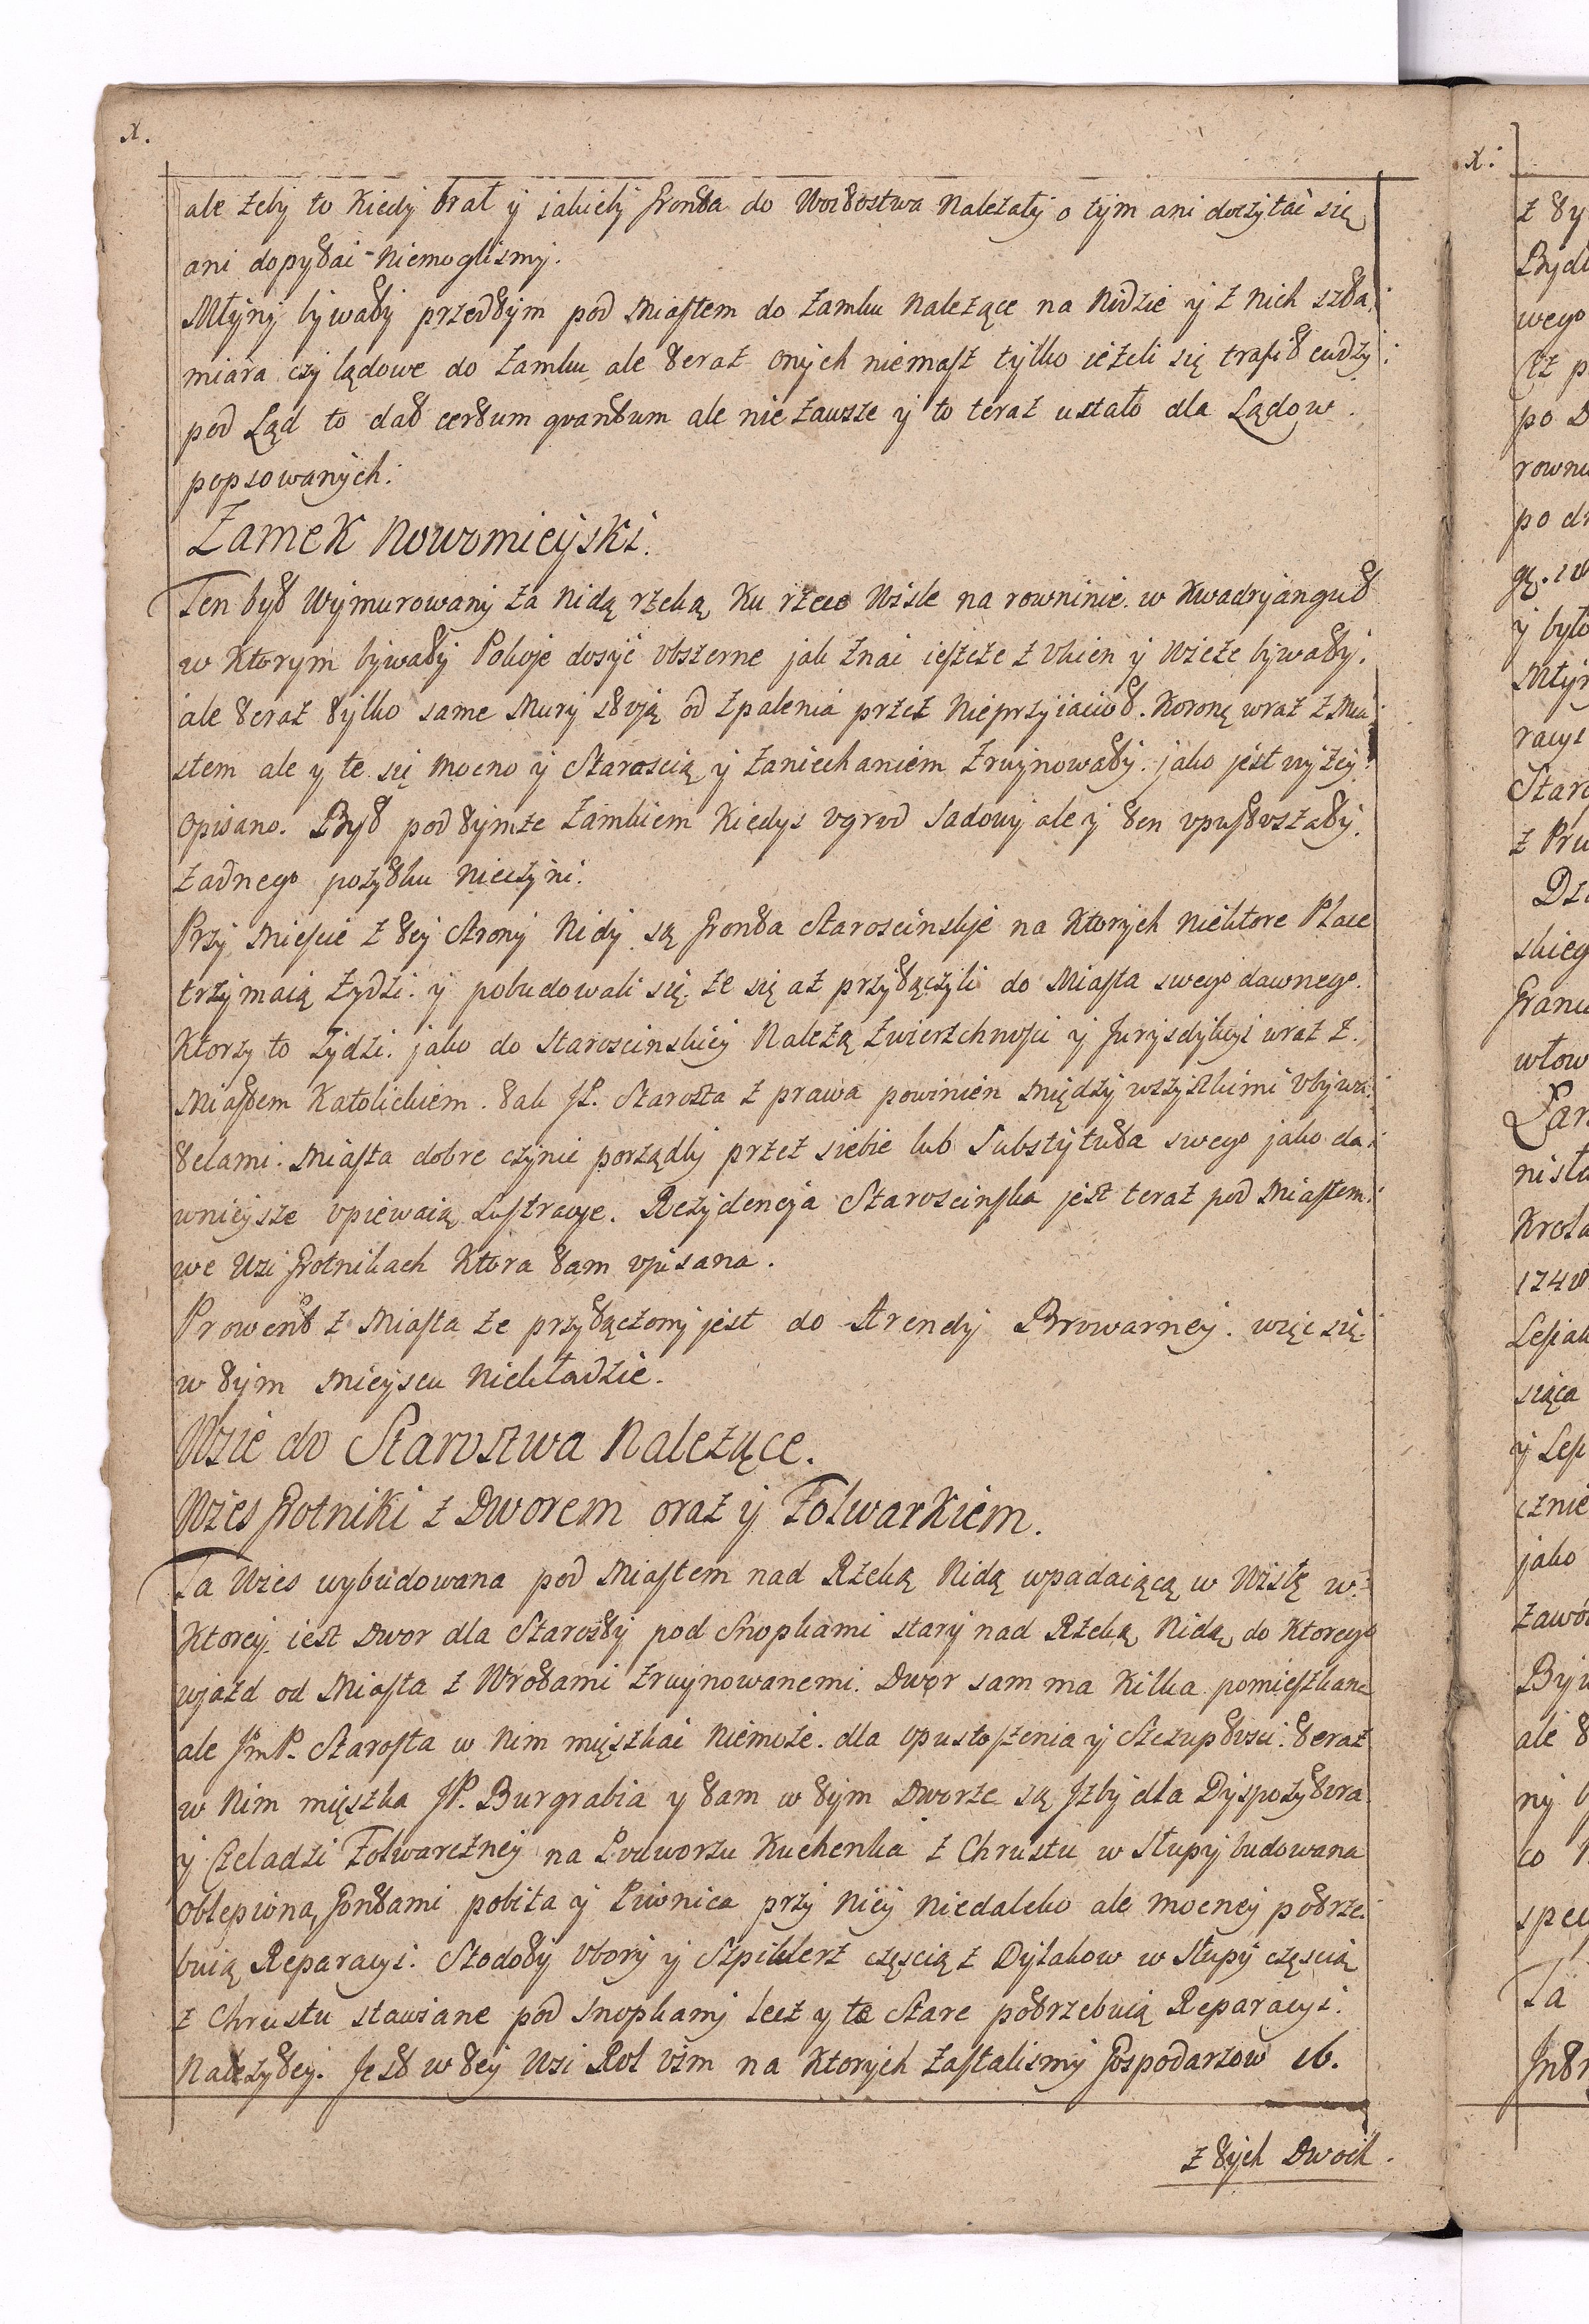 x.
ale żeby to Kiedy brał y jakieby Gronta do Woitostwa Należały o tym ani doczytać się
ani dopytai Niemoglismy.
Młyny bywały przedtym pod Miastem do Zamku Należące na Nidzie y z Nich szła
miara czy lądowe do Zamku ale teraz onych niemasz tylko ieżeli się trafił cudzy
pod Ląd to dał certum quantum ale nie zawsze y to teraz ustało dla Lądow
popsowanych:
Zamek Nowomieyski.
Ten był Wymurowany za Nidą rzeką Ku rzece Wiśle na rowninie. w Kwadryanguł
w Ktorym bywały Pokoje dosyć obszerne jak znai ieszcze z Okien y Wieże bywały.
ale teraz tylko same Mury stoją od spalenia przez Nieprzyiacioł. Koronę wraz z Mia:
stem ale y te się mocno y Staroscią y zaniechaniem zruynowały. jako jest wyżey
opisano. Był pod tymże Zamkiem Kiedys ogrod Sadowy ale y ten opustoszały.
żadnego pożytku nieczyni.
Przy Mieście z tey Strony Nidy są Gronta Staroscinskje na Ktorych niektore Place
trzymaią Żydzi. y pobudowali się. że się aż przyłączyli do Miasta swego dawnego.
Ktorzy to Żydzi. jako do Staroscinskiey Należą zwierzchności y Jurysdykcyi wraz z
Miastem Katolickiem. tak JP. Starosta z prawa powinien między wszystkimi Obywa:
telami. Miasta dobre czynic porządky przez siebie lub Substytuta swego jako da:
wnieysze opiewaią Lustracye. Rezydencja Staroscinska jest teraz pod Miastem
we Wsi Grotnikach Ktora tam opisana.
Prowent z Miasta że przyłączony jest do Arendy Browarney. więc się
w tym Mieyscu Niekładzie.
Wsie do Starostwa Należące.
Wies Grotniki z Dworem oraz y Folwarkiem.
Ta Wies wybudowana pod Miastem nad Rzeką Nidą wpadaiącą w Wisłę w
Ktorey iest Dwor dla Starosty pod Snopkami stary nad Rzeką Nidą do Ktorego
wjazd od Miasta z Wrotami zruynowanemi. Dwor sam ma Kilka pomieszkanc
ale JmP. Starosta w Nim mięszkai Niemoże. dla opustoszenia y Szczupłosci. teraz
w Nim mięszka JP. Burgrabia y tam w tym Dworze są Jzby dla Dyspozytora
y Czeladzi Folwarczney na Podworzu Kuchenka z Chrustu w Słupy budowana
oblepiona, Gontami pobita y Piwnica przy Niey Niedaleko ale mocney potrze:
buią Reparacyi. Stodoły Obory y Szpiklerz częscią z Dylakow w Słupy częscią
z Chrustu stawiane pod Snopkamy lecz y te Stare potrzebuią Reparacyi.
Należytey. Jest w tey Wsi Rol ośm na Ktorych zastalismy Gospodarzow 16.
z tych Dwoch.
x: